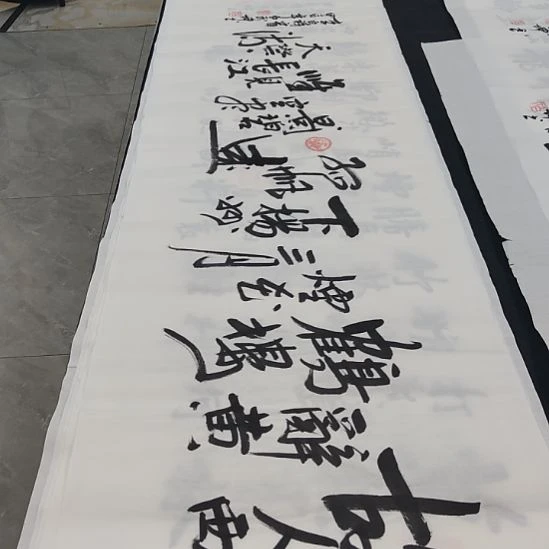 故人西
辭黄
鶴樓
煙花三月
下揚州
孤帆遠
影碧空
見長江
天際流